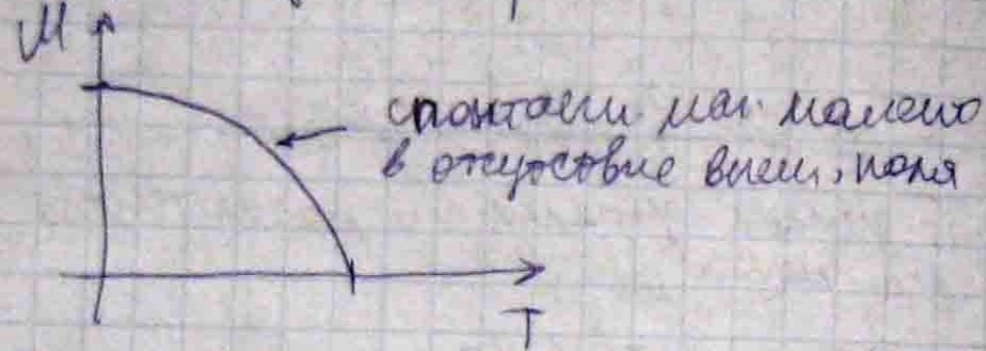 M
спонтанн. маг. момент
в отсутствие внеш. поля
T